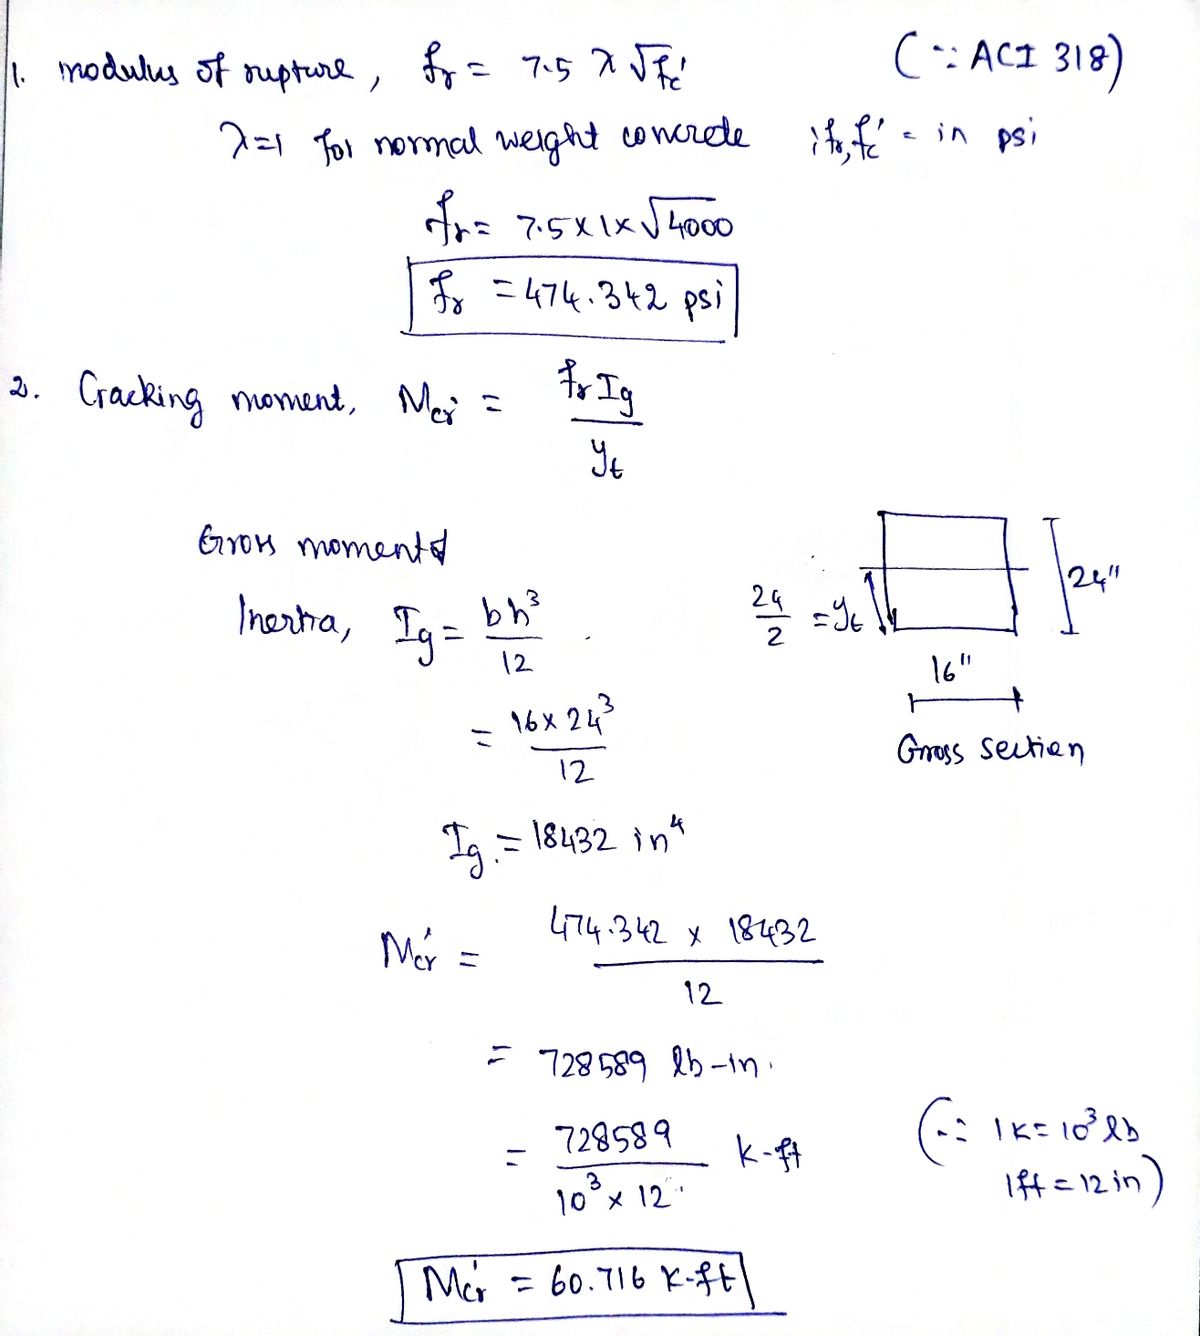 1. modulus of rupture, fr = 7.5 λ √fc' (∵ ACI 318)
λ=1 for normal weight concrete ; fr, fc' = in psi
fr = 7.5 x 1 x √4000
fr = 474.342 psi
2. Cracking moment, Mcr = fr Ig / yt
Gross moment of
Inertia, Ig = bh³ / 12
24/2 = yt
24"
16"
Gross section
= 16 x 24³ / 12
Ig = 18432 in⁴
Mcr = 474.342 x 18432 / 12
= 728589 lb-in.
= 728589 / 10³ x 12 k-ft (∵ 1k = 10³ lb
1ft = 12 in)
Mcr = 60.716 k-ft